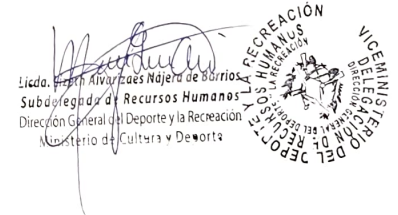 Licda. Lizeth Alvarzaes Nájera de Barrios
Subdelegada de Recursos Humanos
Dirección General del Deporte y la Recreación
Ministerio de Cultura y Deporte
VICEMINISTERIO DEL DEPORTE Y LA RECREACIÓN
DELEGACIÓN DE RECURSOS HUMANOS
DIRECCIÓN GENERAL DEL DEPORTE Y LA RECREACIÓN